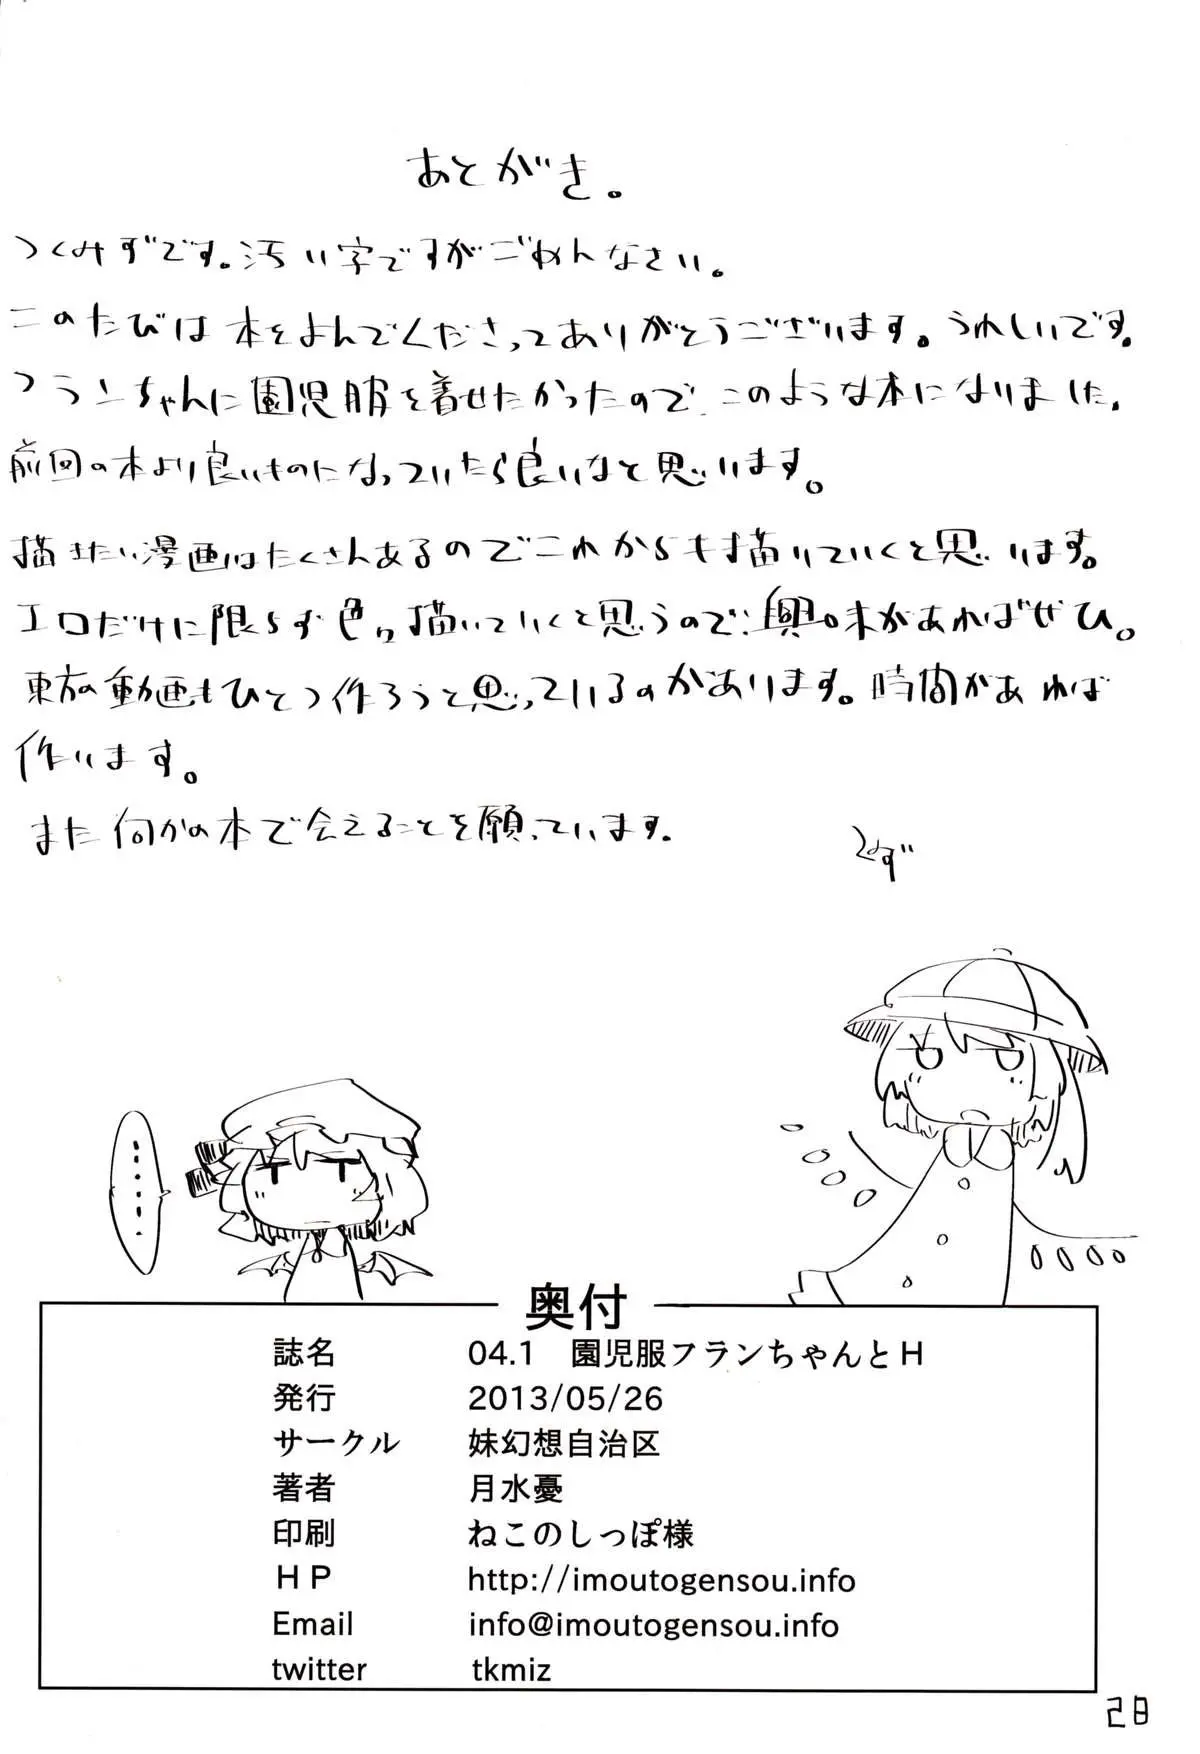 あとがき。
つくみずです。汚い字ですがごめんなさい。
このたびは本をよんでくださってありがとうございます。うれしいです。
フランちゃんに園児服を着せたかったので、このような本になりました。
前回の本より良いものになっていたら良いなと思います。
描きたい漫画はたくさんあるのでこれからも描いていくと思います。
エロだけに限らず色々描いていくと思うので、興味があればぜひ。
東方の動画もひとつ作ろうと思っているのがあります。時間があれば
作います。
また何かの本で会えることを願っています。
みず
・・・・・・
奥付
誌名 04.1 園児服フランちゃんとH
発行 2013/05/26
サークル 妹幻想自治区
著者 月水憂
印刷 ねこのしっぽ様
HP http://imoutogensou.info
Email info@imoutogensou.info
twitter tkmiz
28